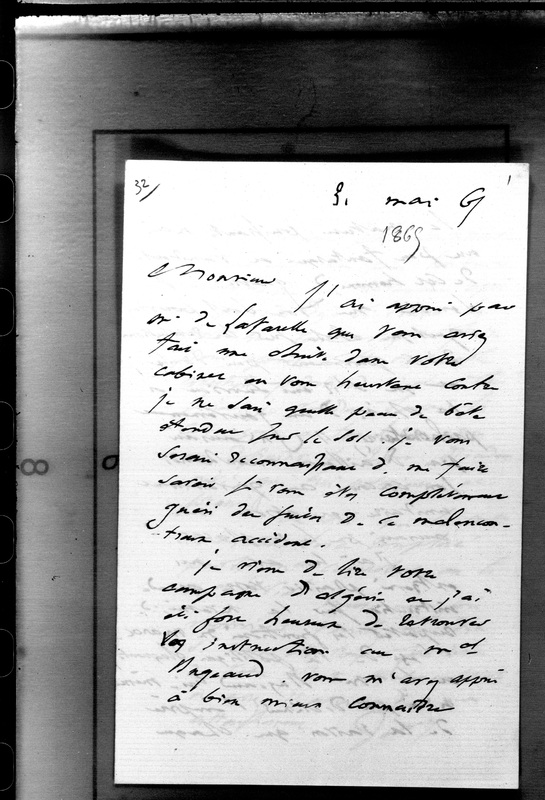 32/
1
31 mai 65
1865
Monsieur J'ai appris par
mr de Latarelle que vous aviez
fait une chute dans votre
cabinet en vous heurtant contre
je ne sais quelle peau de bête
étendue sur le sol. je vous
serais reconnaissant de me faire
savoir si vous êtes complètement
guéri des suites de ce malencon-
treux accident.
je viens de lire votre
campagne d'algérie et j'ai
été fort heureux de retrouver
les instructions au mal
Bugeaud. vous m'avez appris
à bien mieux connaître